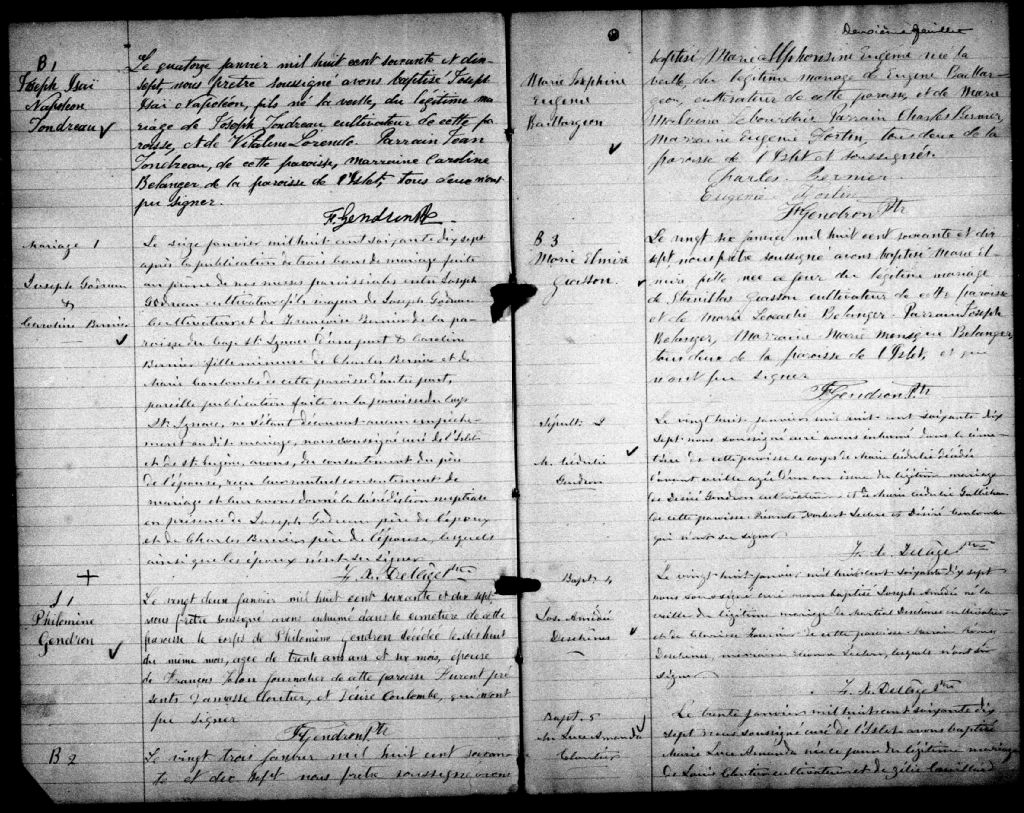 B 1
Joseph Isaï
Napoléon
Tondreau
Le quatorze janvier mil huit cent soixante et dix-
sept, nous prêtre soussigné avons baptisé Joseph
Isaï Napoléon, fils né la veille, du légitime ma
riage de Joseph Tondreau cultivateur de cette pa
roisse, et de Vitaline Lorendo. Parrain Jean
Tondreau, de cette paroisse, marraine Caroline
Belanger de la paroisse de l'Islet, tous deux n'ont
pu signer.
F. Gendron Ptr
Mariage 1
Joseph Gôdreau
&
Caroline Bernier
Le seize janvier mil huit cent soixante dix sept
après la publication de trois bans de mariage faite
au prône de nos messes paroissiales entre Joseph
Gôdreau cultivateur fils majeur de Joseph Gôdreau
cultivateur et de Françoise Bernier de la pa-
roisse du Cap St Ignace d'une part & Caroline
Bernier fille mineure de Charles Bernier et de
Marie Coulombe de cette paroisse d'autre part,
pareille publication faite en la paroisse du Cap
St Ignace, ne s'étant découvert aucun empêche-
ment au dit mariage, nous soussigné curé de l'Islet
et de St Eugène, avons, du consentement du père
de l'épouse, reçu leur mutuel consentement de
mariage et leur avons donné la bénédiction nuptiale
en présence de Joseph Gôdreau père de l'époux
et de Charles Bernier père de l'épouse, lesquels
ainsi que les époux n'ont su signer
F. X. Delâge Ptre
S 1
Philomine
Gendron
Le vingt deux janvier mil huit cent soixante et dix sept
nous prêtre soussigné avons inhumé dans le cimetière de cette
paroisse le corps de Philomine Gendron décédée le dix huit
du même mois, agée de trente ans et six mois, épouse
de François journalier de cette paroisse Furent pré
sents Damasse Cloutier, et Désiré Coulombe, qui n'ont
pu signer
F. Gendron Ptr
B 2
Le vingt trois janvier mil huit cent soixan-
te et dix sept nous prêtre soussigné avons
Deuxième feuillet
Marie Joséphine
Eugénie
Baillargeon
baptisé Marie Alphonsine Eugénie née la
veille du légitime mariage de Eugène Baillar-
geon, cultivateur de cette paroisse, et de Marie
Malvina Lebourdais Parrain Charles Bernier,
Marraine Eugénie Fortin, tous deux de la
paroisse de l'Islet et soussignés.
Charles Bernier
Eugénie Fortin
F. Gendron Ptr
B. 3
Marie Elmire
Gasson
Le vingt six janvier mil huit cent soixante et dix
sept, nous prêtre soussigné avons baptisé Marie El-
mire, fille née ce jour du légitime mariage
de Stanislas Gasson cultivateur de cette paroisse
et de Marie Léocadie Belanger. Parrain Joseph
Belanger, Marraine Marie Belanger,
tous deux de la paroisse de l'Islet, et qui
n'ont pu signer
F. Gendron Ptr
Sépult. 2
M. Cédulie
Gendron
Le vingt huit janvier mil huit cent soixante dix
sept nous soussigné curé avons inhumé dans le cime-
tière de cette paroisse le corps de Marie Cédulie décédée
l'avant veille agée d'un an issue du légitime mariage
de Désiré Gendron cultivateur et de Marie Cédulie
de cette paroisse. Présents Norbert Leclerc et Désiré Coulombe
qui n'ont su signer
F. X. Delâge Ptre
Bapt. 4
Jos. Amédé
Deschênes
Le vingt huit janvier mil huit cent soixante dix sept
nous soussigné curé avons baptisé Joseph Amédé né la
veille du légitime mariage de Martial Deschênes cultivateur
et de Clarisse Fournier de cette paroisse. Parrain Rémi
Deschênes, marraine Leclerc, lesquels n'ont su
signer
F. X. Delâge Ptre
Bapt. 5
M. Luce Amanda
Cloutier
Le trente janvier mil huit cent soixante dix
sept nous soussigné curé de l'Islet avons baptisé
Marie Luce Amanda née ce jour du légitime mariage
de Louis Cloutier cultivateur et de Zélie Caouillard